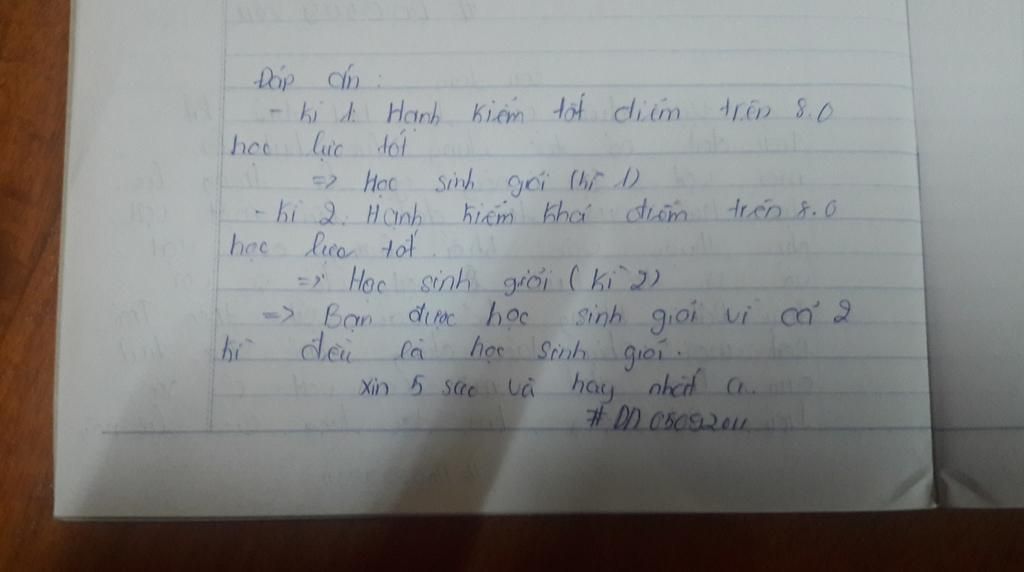 Đáp án:
- Kì 1: Hạnh kiểm tốt điểm trên 8.0
học lực tốt
=> Học sinh giỏi (kì 1)
- Kì 2: Hạnh kiểm khá điểm trên 8.0
học lực tốt.
=> Học sinh giỏi (Kì 2)
=> Bạn được học sinh giỏi vì cả 2
kì đều là học sinh giỏi.
xin 5 sao và hay nhất ạ..